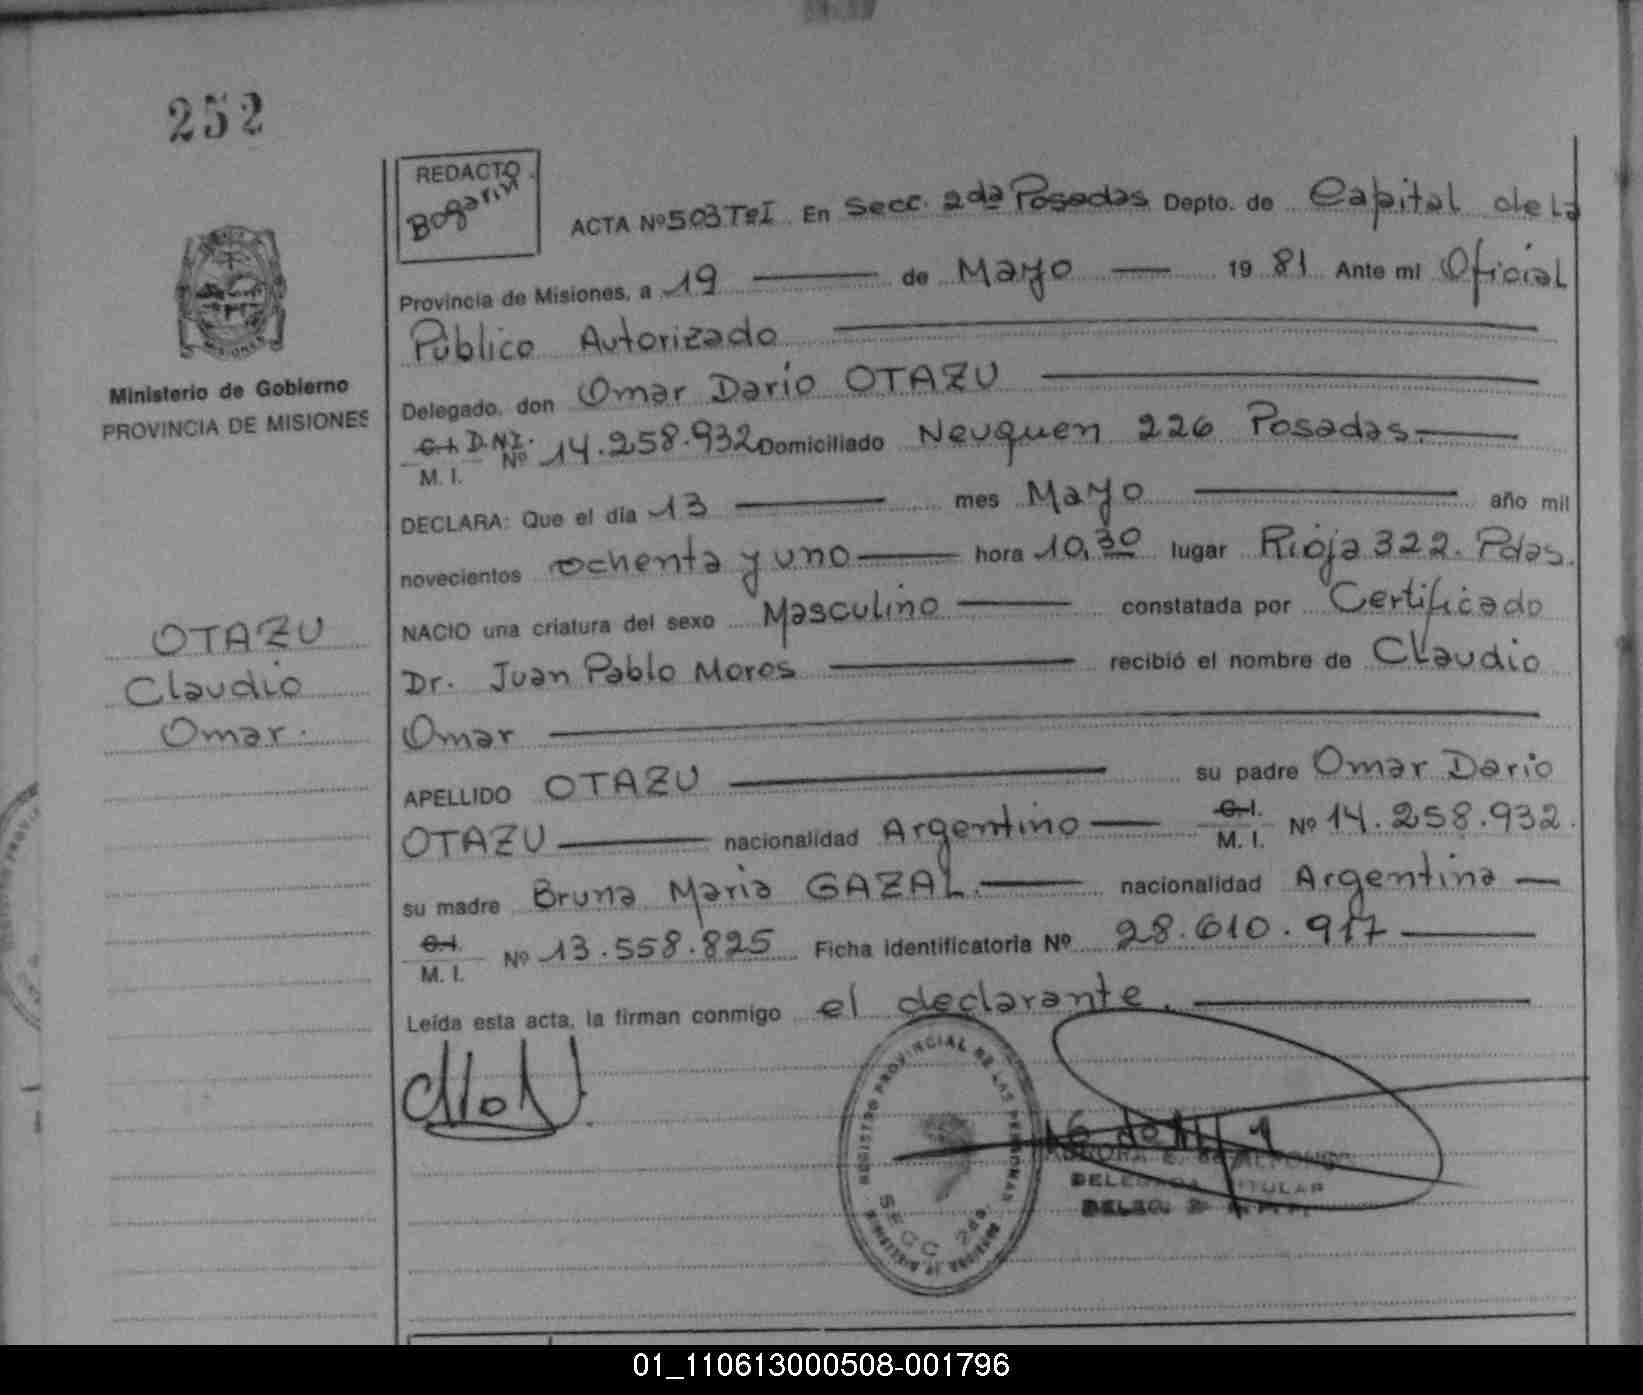 252
REDACTO
Bogarin
ACTA Nº 503 TºI En Secc. 2da Posadas Depto. de Capital de la
Provincia de Misiones, a 19 de Mayo 19 81 Ante mi Oficial
Público Autorizado
Delegado, don Omar Dario OTAZU
C.I. D.N.I.
M. I. Nº 14.258.932 Domiciliado Neuquen 226 Posadas.
DECLARA: Que el día 13 mes Mayo año mil
novecientos ochenta y uno hora 10,30 lugar Rioja 322. Pdas.
NACIO una criatura del sexo Masculino constatada por Certificado
Dr. Juan Pablo Moros recibió el nombre de Claudio
Omar
APELLIDO OTAZU su padre Omar Dario
OTAZU nacionalidad Argentino C.I. M. I. Nº 14.258.932.
su madre Bruna Maria GAZAL. nacionalidad Argentina
C.I. M. I. Nº 13.558.825 Ficha identificatoria Nº 28.610.917
Leída esta acta, la firman conmigo el declarante.
Ministerio de Gobierno
PROVINCIA DE MISIONES
OTAZU
Claudio
Omar.
REGISTRO PROVINCIAL DE LAS PERSONAS
SECC 2da.
DELEGADA TITULAR
01_110613000508-001796